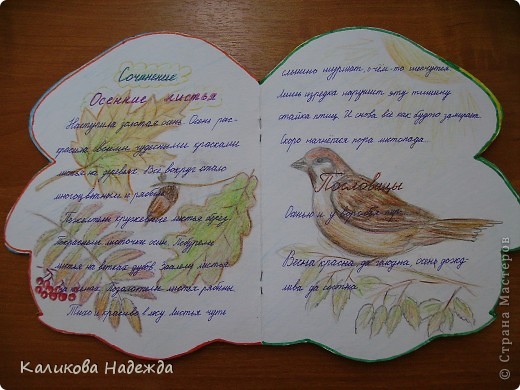 Сочинение
Осенние листья
Наступила золотая осень. Осень рас-
красила своими чудесными красками
листья на деревьях. Всё вокруг стало
многоцветным и
Пожелтели кружевные листья берёз.
листочки осин. Побурели
листья на ветках дубов. листья
клёна. Позолотели листья рябины.
Тихо и красиво в лесу. Листья чуть
слышно шуршат, о чём-то шепчутся.
Лишь изредка нарушит эту тишину
стайка птиц. И снова всё как будто замирает.
Скоро начнётся пора листопада...
Пословицы
Осенью и у воробья пир.
Весна красна, да голодна, осень дожд-
лива, да сытна.
Каликова Надежда
© Страна Мастеров